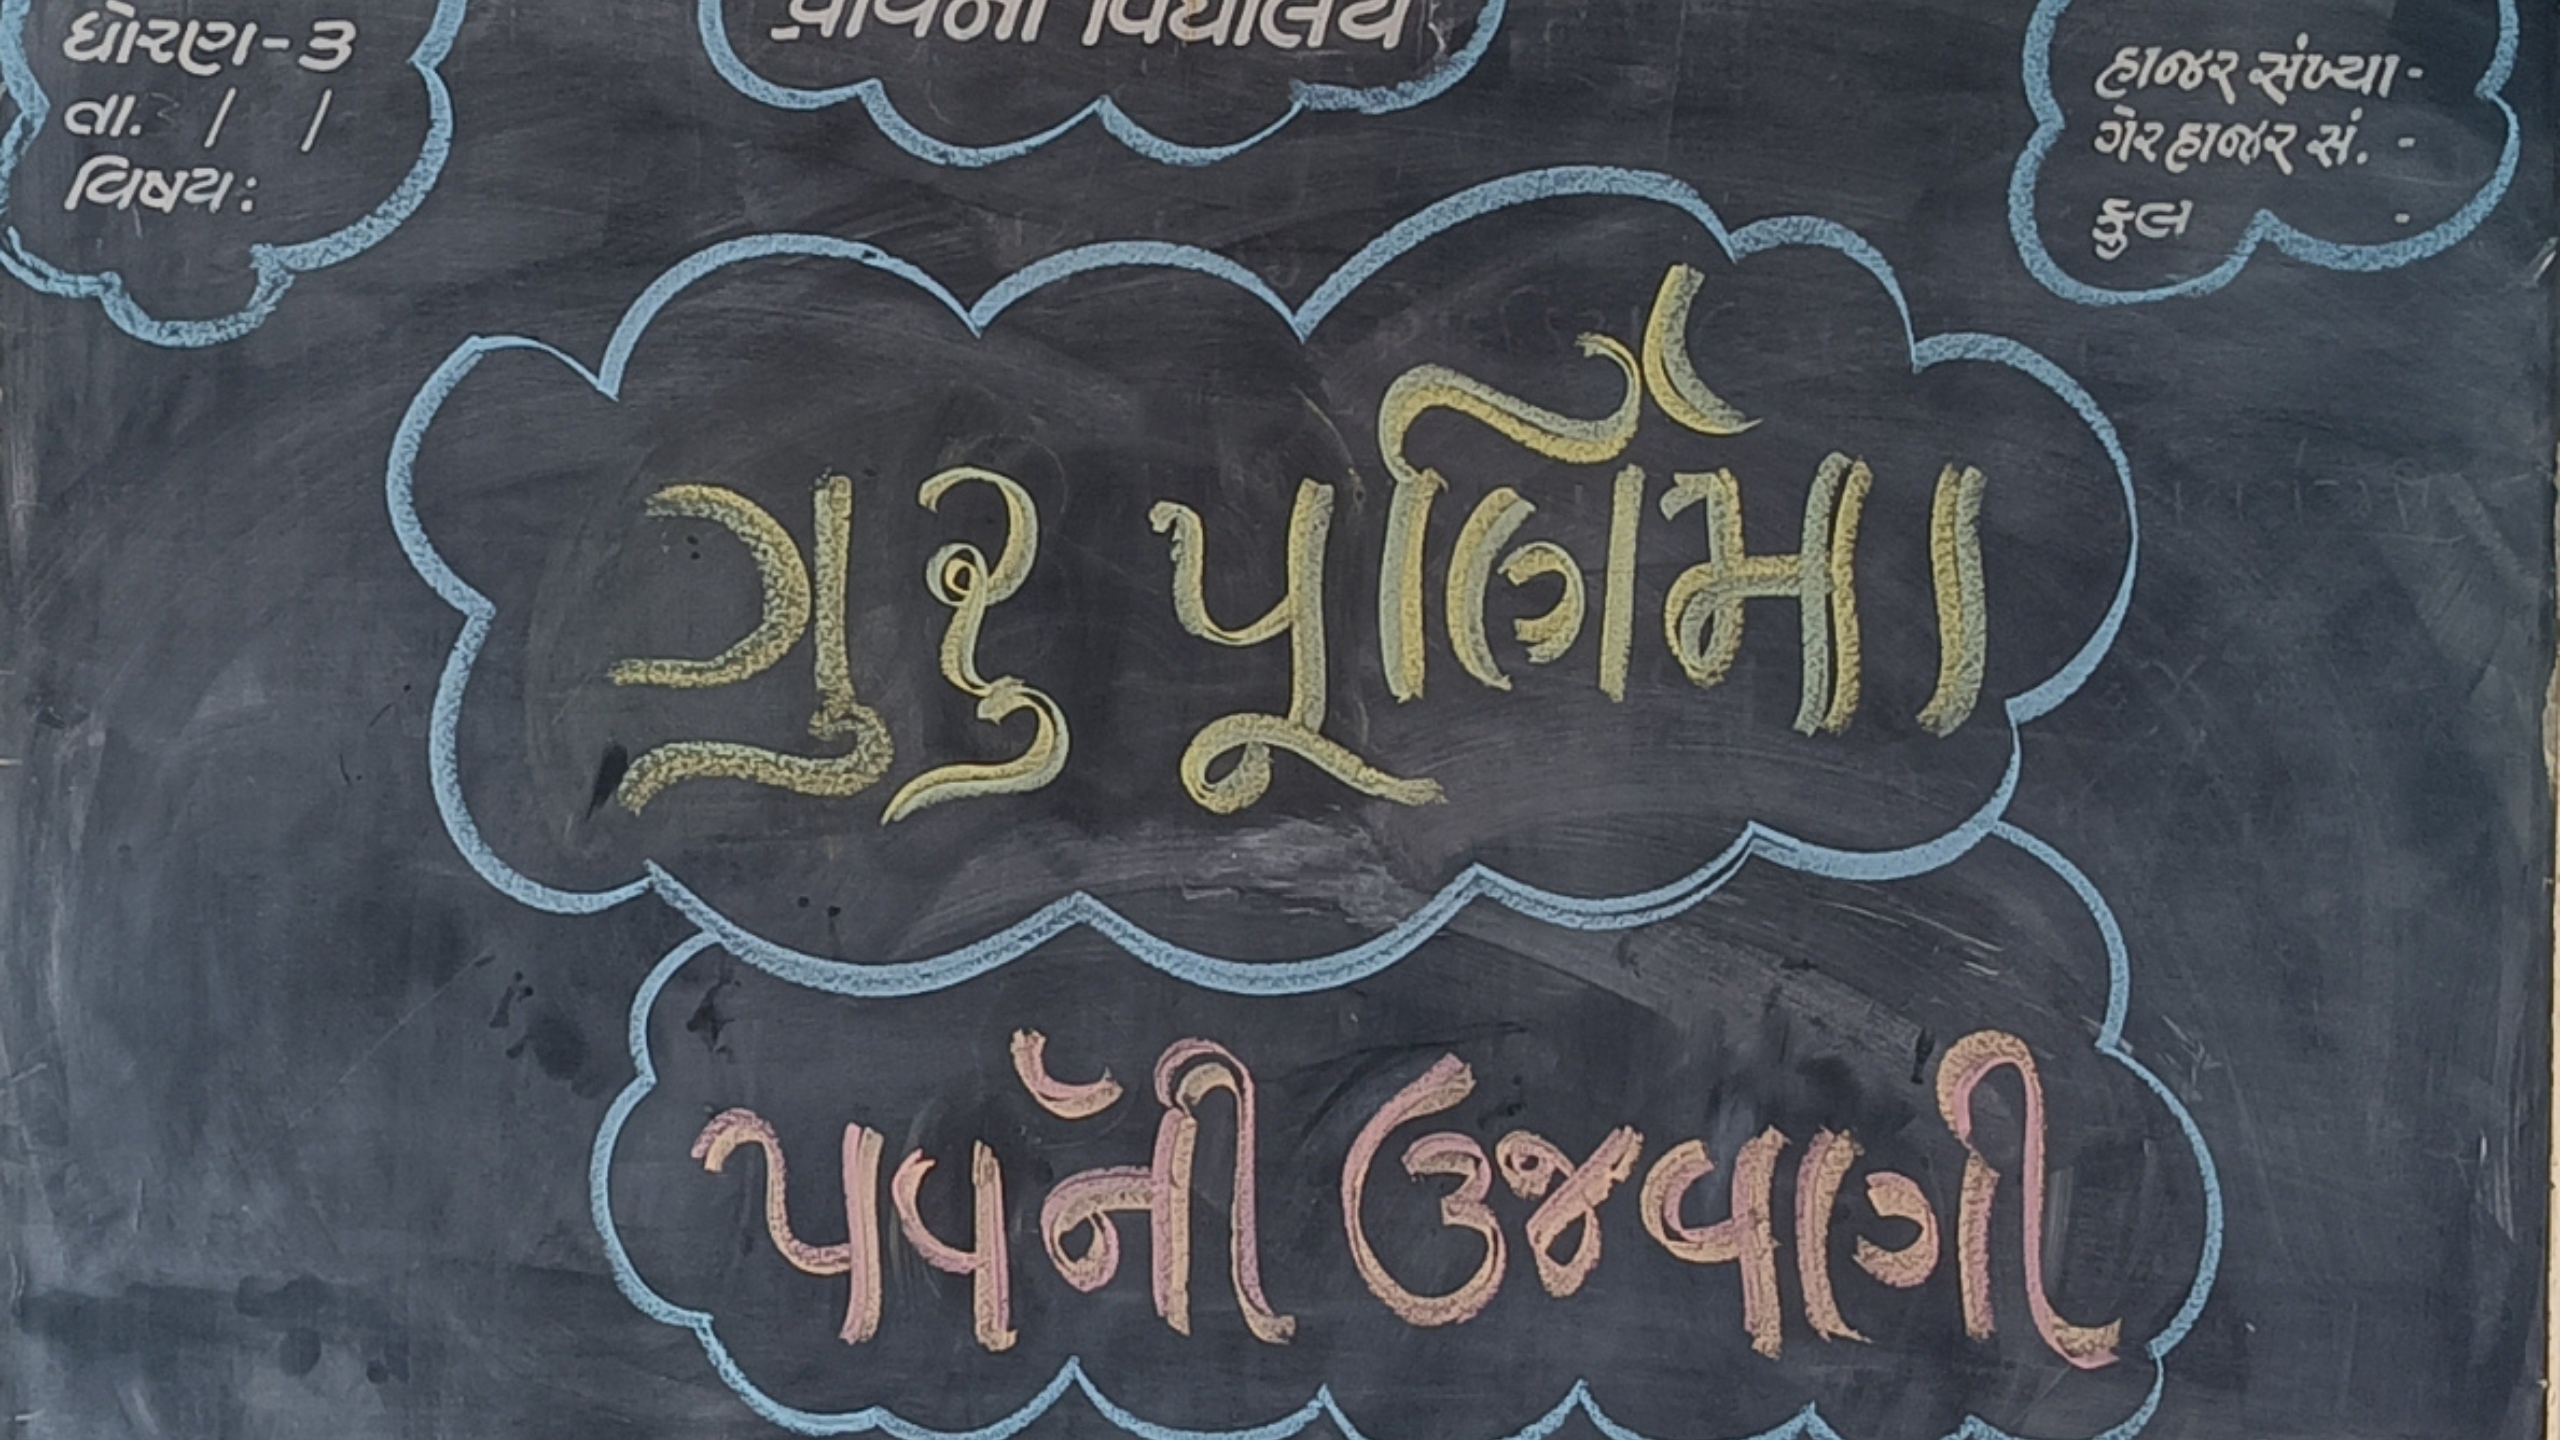 ધોરણ-૩
તા. / /
વિષય:
વિદ્યાલય
હાજર સંખ્યા -
ગેરહાજર સં. -
કુલ -
ગુરુ પૂર્ણિમા
પર્વની ઉજવણી